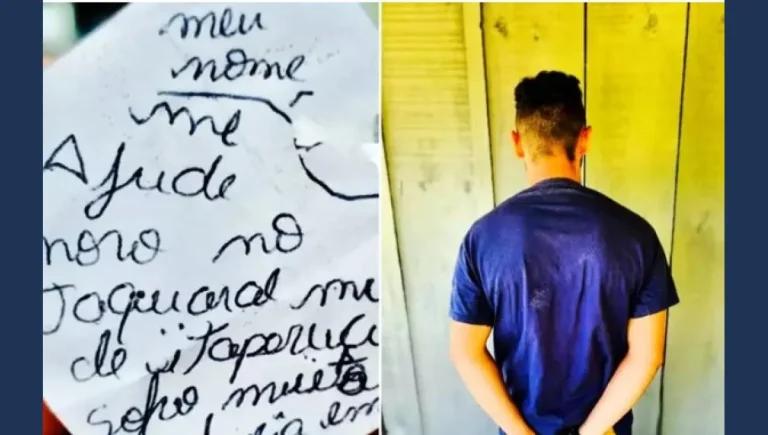 meu
nome
me
Ajude
moro no
Jaquaral mu
de itaperuçu
sofro muito
em